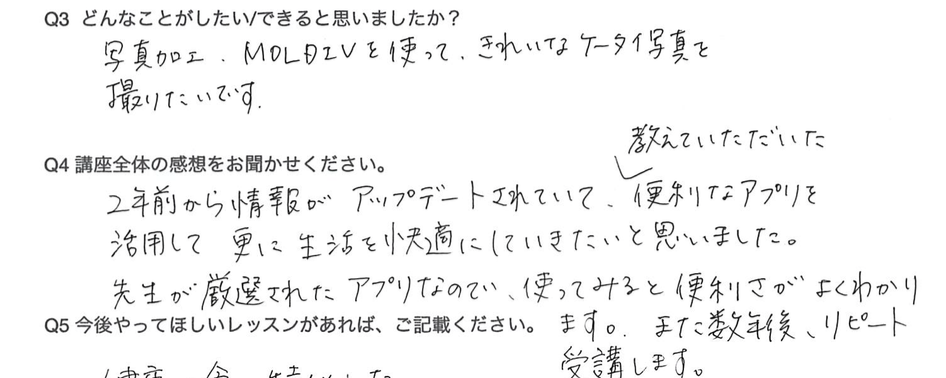 Q3 どんなことがしたい/できると思いましたか？
写真加工、MOLDIVを使って、きれいなケータイ写真を
撮りたいです。
Q4 講座全体の感想をお聞かせください。
教えていただいた
2年前から情報がアップデートされていて、便利なアプリを
活用して更に生活を快適にしていきたいと思いました。
先生が厳選されたアプリなので、使ってみると便利さがよくわかり
ます。また数年後、リピート
受講します。
Q5 今後やってほしいレッスンがあれば、ご記載ください。